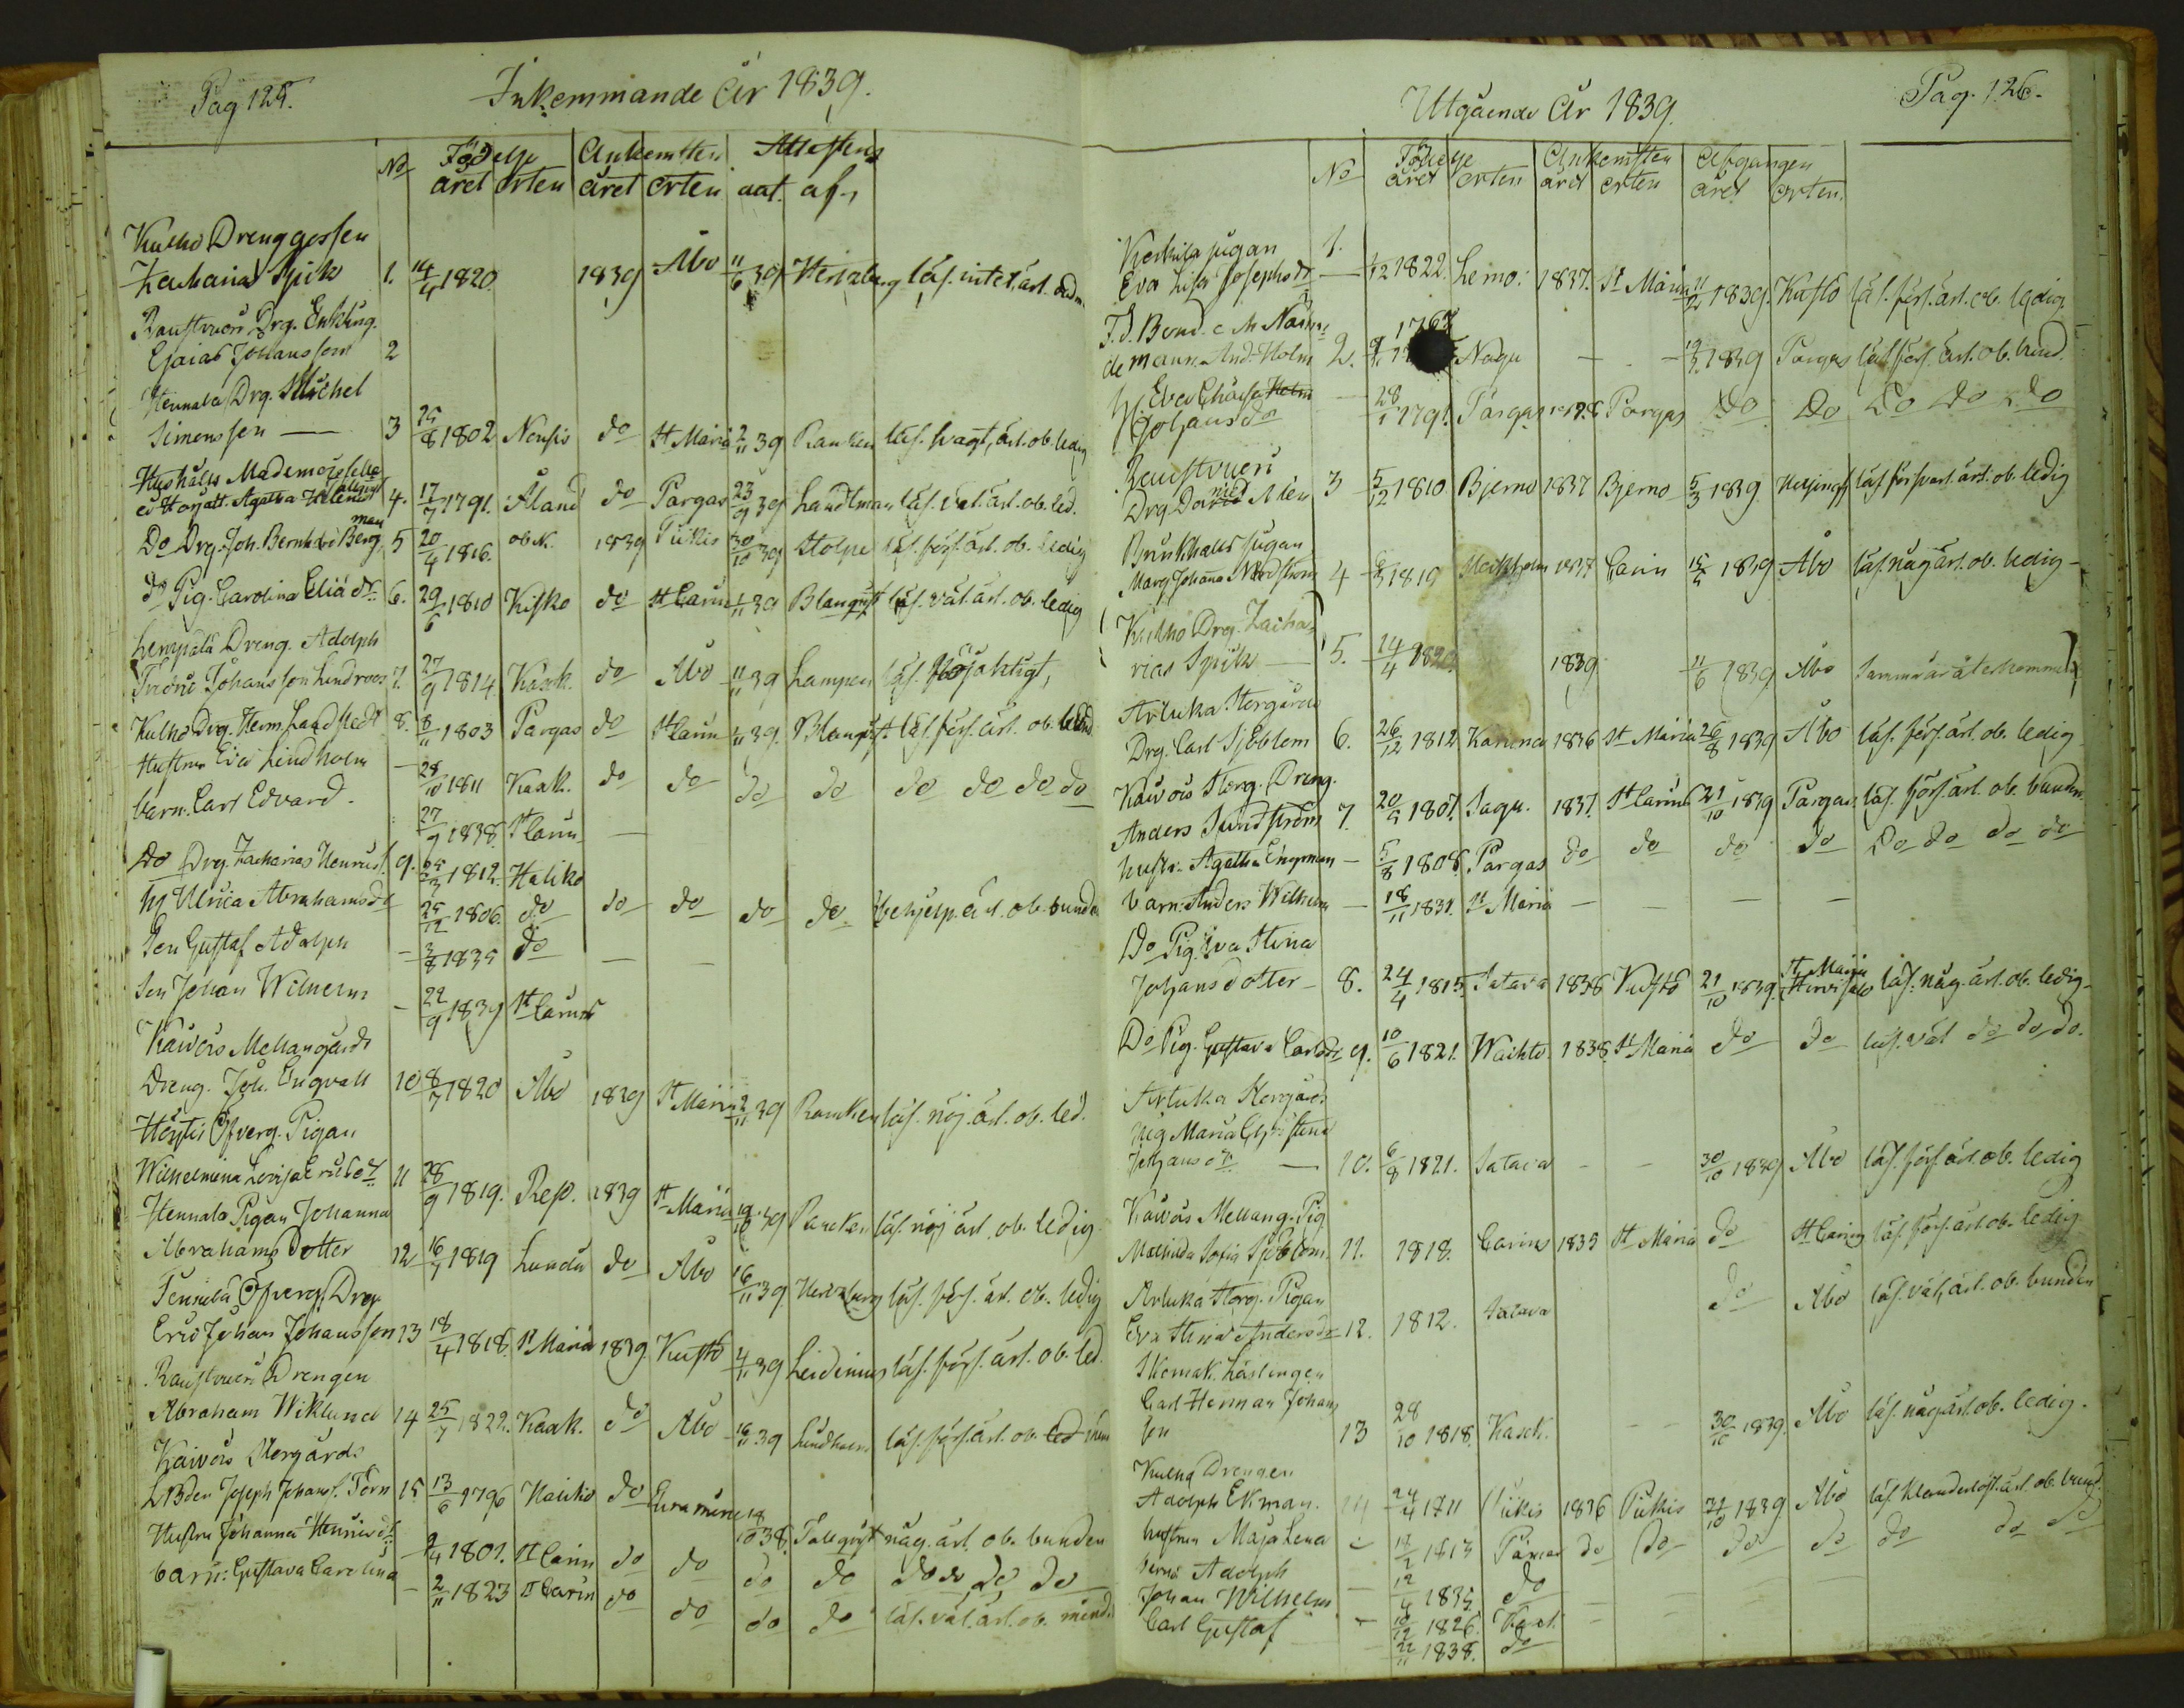 Pag 125.
Inkommande År 1839.
No Födelse Ankomsten Attestens
året orten året orten dat. af,
Kuthö Drenggossen
Zacharias Spik 1. 14/4 1820 1839 Åbo 11/6 39 läs. intet. ärl.
Raustvuori Drg. Enkling
Esaias Johansson 2
Hennala Drg. Michel
Simonsson — 3 25/8 1802 Nousis do St Mariæ 2/11 39 Rancken läs. svagt, ärl. ob. ledig
Hushålls Mademoiselle
Agatha Helenius 4. 17/7 1791. Åland do Pargas 23/9 39 Landtman läs. väl. ärl. ob. led.
Do Drg. Joh. Bernhd Bergman 5 20/4 1816. 1839 Piikis 30/10 39 Stolpe läs. förs. ärl. ob. ledig
do Pig. Carolina Eliä dr 6. 29/6 1810 Kisko do St Carin 1/11 39 Blanqvist läs. väl. ärl. ob. ledig
Lempälä Dreng. Adolph
Fredric Johansson Lindroos 7. 27/9 1814 Kask. do Åbo 11/11 39 Lampen läs. Nöjaktigt,
Kulho Drg. Herm. Landstedt 8. 8/11 1803 Pargas do St Carin 1/11 39. Blanqvist läs. förs. ärl. ob.
Hustrun Eva Lindholm — 28/10 1811 Kaak. do do do do do do do do
barn. Carl Edvard. 27/9 1838. St Carin —
Do Drg. Zacharias Henriss. 9. 25/3 1812. Haliko
h Ulrica Abrahamsdr 25/12 1806. do do do do do behjelp. ärl. ob. bunden
Son Gustaf Adolph — 3/8 1835 do — —
Son Johan Wilhelm — 22/9 1839 St Carins
Kaivois Mellangårds
Dreng. Joh. Engvall 10 8/7 1820 Åbo 1839 St Mariæ 2/11 39 Rancken läs. nöj. ärl. ob. led.
Höytis Öfverg. Pigan
Wilhelmina Lovisa Ericsdr 11 28/9 1819. Reso. 1839 St Mariæ 19/10 39 Rancken läs. nöj ärl. ob. ledig
Hennala Pigan Johanna
Abrahams dotter 12 16/7 1819 Lundo do Åbo 16/11 39 läs. förs. ärl. ob. ledig
Tennilä Öfverg. Drg
Eric Johan Johansson 13 18/4 1818. St Mariæ 1839. Kustö 4/11 39 Leidenius läs. förs. ärl. ob. led.
Raustvuori Drengen
Abraham Wiklund 14 25/7 1822. Kaak. do Åbo 16/11 39 Lindholm läs. förs. ärl. ob.
Kaivois Storgårds
LBden Joseph Johans. Törn 15 13/6 1796 Nauvo do 18/10 38. Tallqvist någ. ärl. ob. bunden
Hustru Johanna Henricsdr — 9/4 1801. St Carin do do do do do do do do
barn: Gustava Carolina — 2/11 1823 St Carin do do do do läs. väl. ärl. ob. mind.
Pag. 126.
Utgående År 1839.
No Födelse Ankomsten Afgången
året orten året orten året orten.
pigan 1.
Eva Lisa Josephsdr — 1/12 1822. Lemo. 1837. St Mariæ 11/2 1839. Kustö läs. förs. ärl. ob. ledig
F.d. Bond.
And. Holm 2. 1767 Nagu — — 19/3 1839 Pargas läs. förs. ärl. ob. bund.
H. Eva Holm
Johansdr — 28/1 1791. Pargas Pargas Do Do Do Do Do
Raustvuori
Drg David Alén 3 5/12 1810 Bjerno 1837 Bjerno 5/3 1839 Helsingf läs. försvarl. ärl. ob. ledig
Brunkhalls pigan
Marg Johana Nordström 4 1819 1837 Carin 15/5 1839 Åbo läs. någ ärl. ob. ledig —
Kuhho Drg. Zacha
rias Spik — 5. 14/4 1820 1839 11/6 1839 Åbo
Artuka Storgårds
Drg. Carl Sjöblom 6. 26/12 1812 Karuna 1836 St Mariæ 26/8 1839 Åbo läs. förs. ärl. ob. ledig
Kaivois Storg. Dreng.
Anders Sundström 7. 20/9 1807. Sagu. 1837. St Carins 21/10 1839 Pargas läs. förs. ärl. ob. bunden
hustr. Agatha Engman — 5/8 1808. Pargas do do do do Do do do do
barn. Anders Wilhelm — 18/11 1831. St Mariæ — — — —
Do Pig. Eva Stina
Johansdotter — 8. 24/4 1815. Satava 1838 Kustö 21/10 1839. St Mariæ Hirvisalo läs. någ. ärl. ob. ledig —
Do Pig. Gustava Carlsdr 9. 10/6 1821. Wichtis 1838. St Mariæ do do läs. väl do do do.
Artuka Storgårds
pig Maria Christina
Johansdr — 10. 6/8 1821. Satava — — 30/10 1839 Åbo läs. förs. ärl. ob. ledig
Kaivois Mellang. Pig
Mathilda Sofia Sjöblom 11. 1818. Carins 1835 St Mariæ do St Carins läs. förs. ärl. ob. ledig
Artuka Storg. Pigan
Eva Stina Andersdr 12. 1812. Satava do Åbo läs. väl, ärl. ob. bunden
Skomak. Lärlingen
Carl Herman Johans
son 13 28/10 1818. Kask. — — 30/10 1839. Åbo läs. någ ärl. ob. ledig.
Kulho Drengen
Adolph Ekman. 14 24/4 1711 Piikis 1836 Piikis 31/10 1839 Åbo läs. klanderlöst. ärl. ob. bund.
hustrun Maja Lena — 14/2 1813 Pämar do do do do do do do
barn. Adolph — 12/4 1835. do — — —
Johan Wilhelm — 10/12 1826. — —
Carl Gustaf — 22/11 1838. do